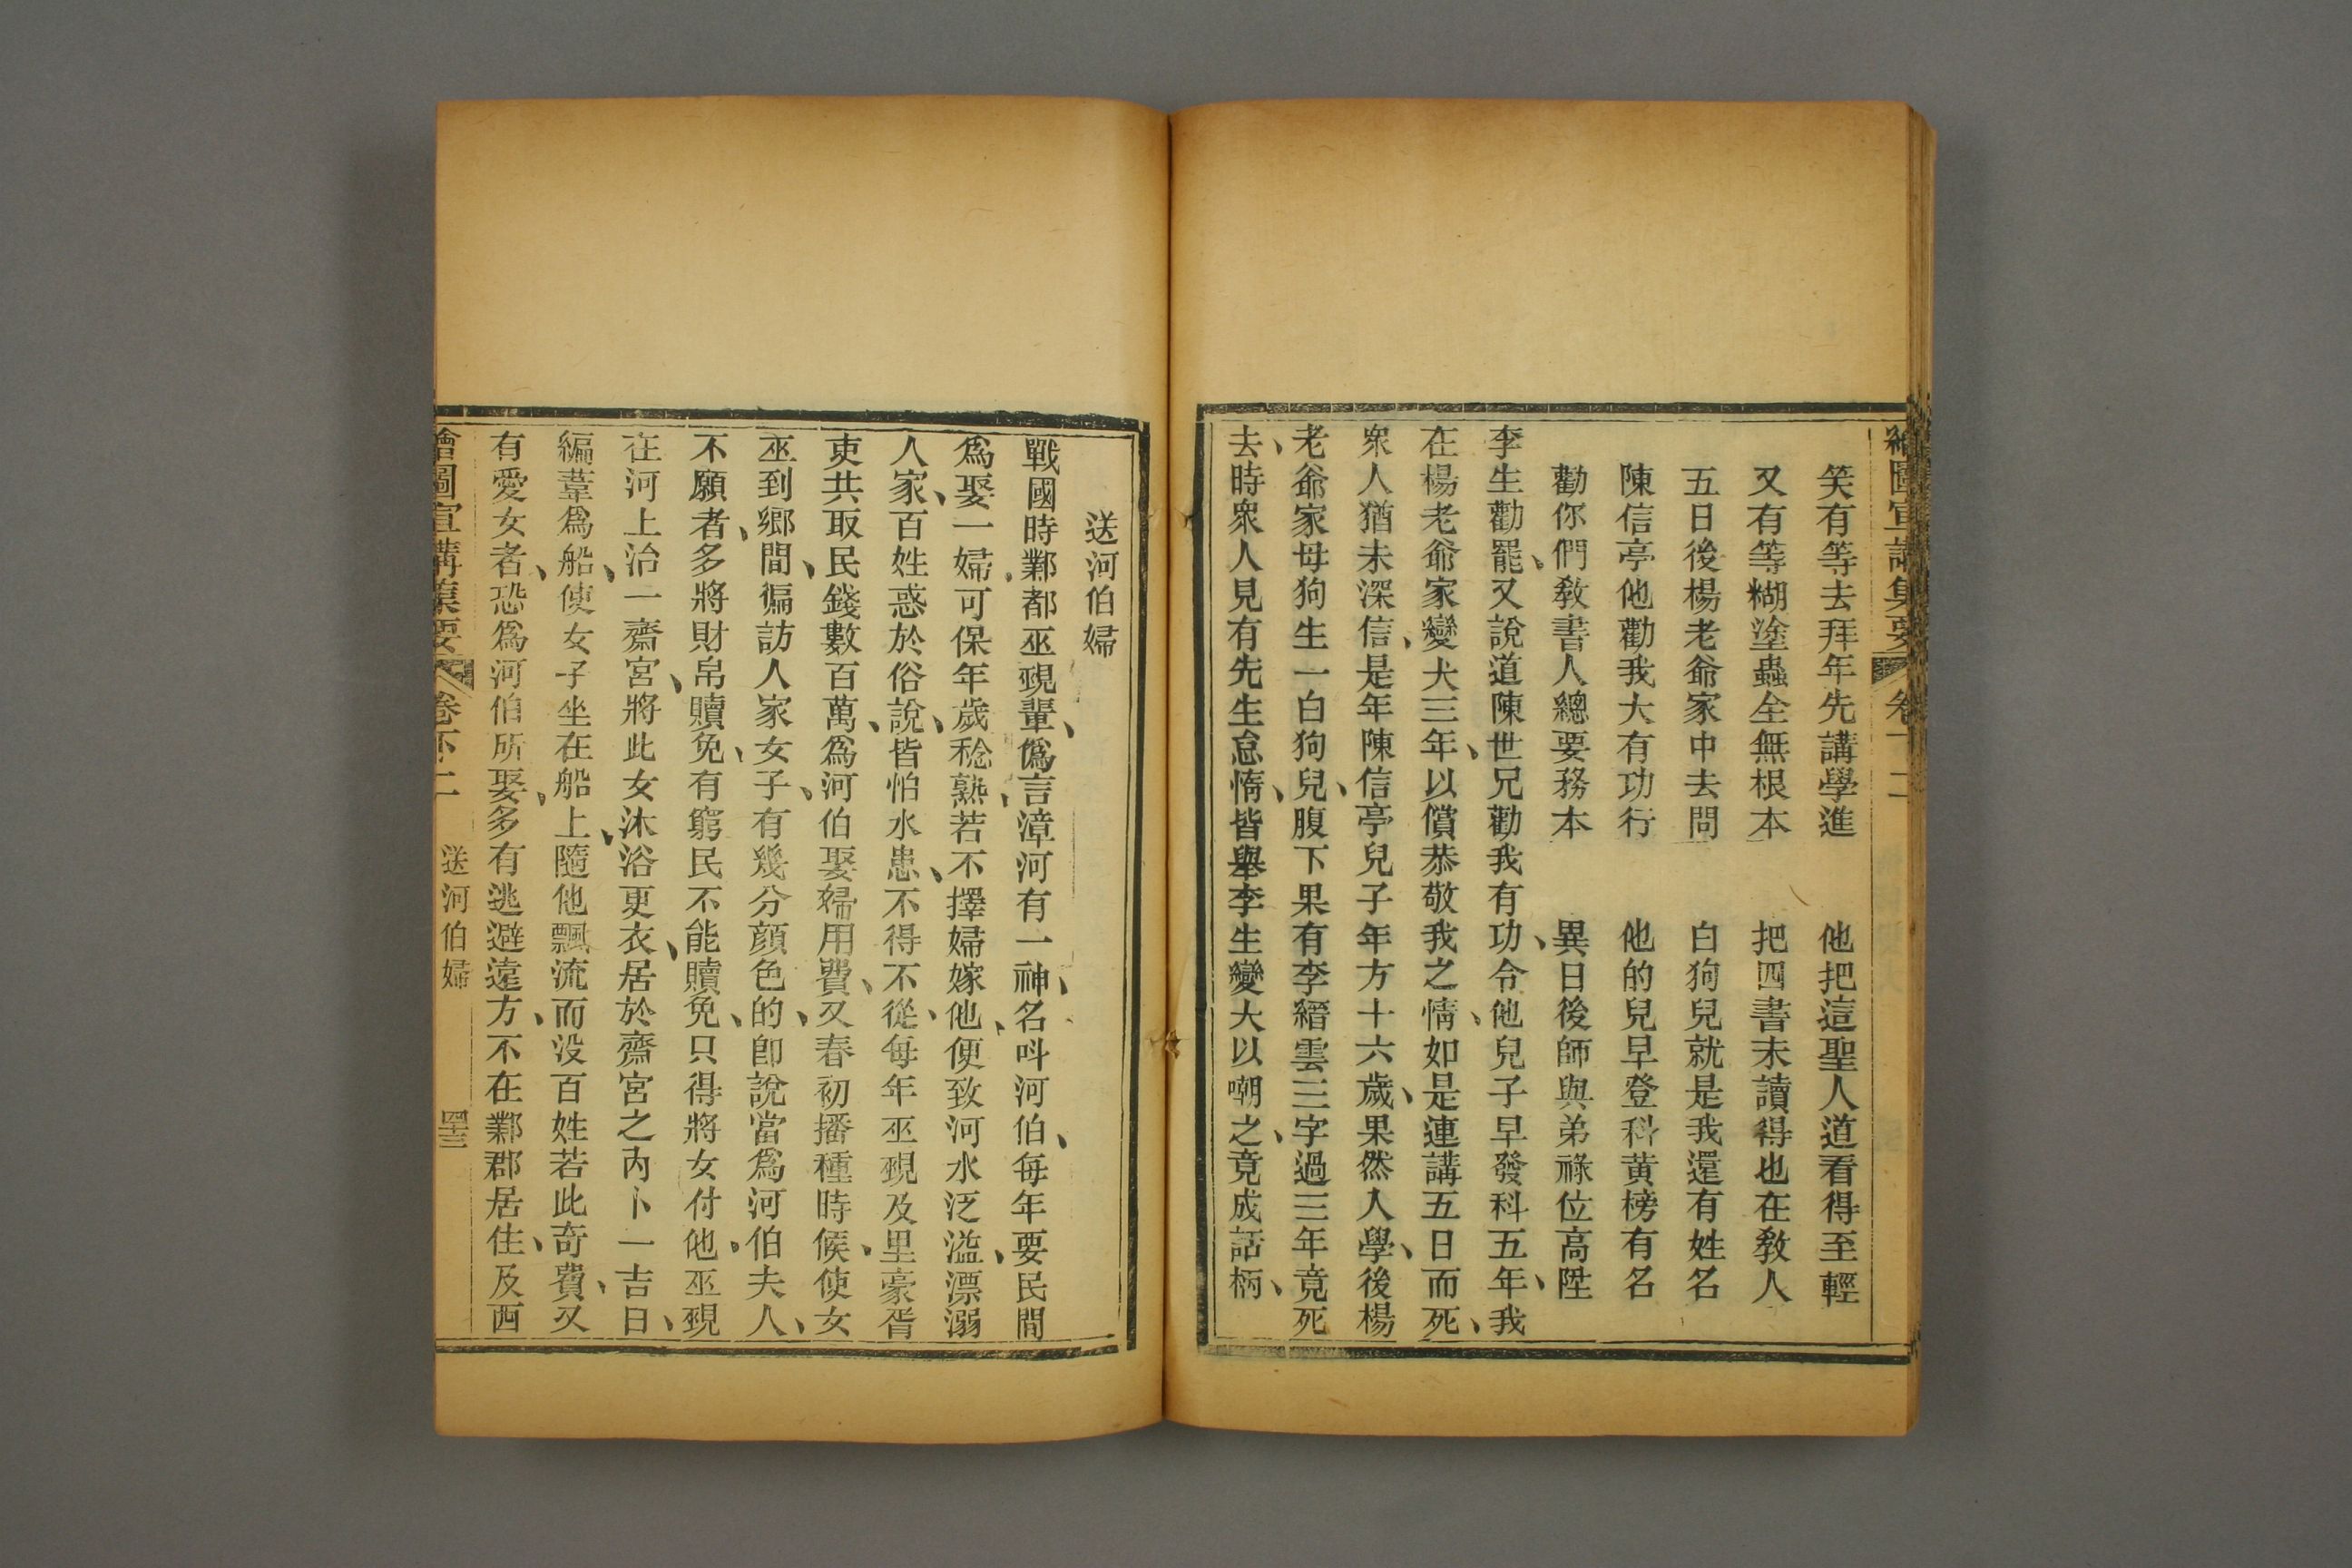 繪圖宣講集要 卷十二
笑有等去拜年先講學進 他把這聖人道看得至輕
又有等糊塗蟲全無根本 把四書未讀得也在敎人
五日後楊老爺家中去問 白狗兒就是我還有姓名
陳信亭他勸我大有功行 他的兒早登科黃榜有名
勸你們敎書人總要務本 異日後師與弟祿位高陞
李生勸罷、又說道陳世兄勸我有功、令他兒子早發科五年、我
在楊老爺家變犬三年、以償恭敬我之情、如是連講五日而死、
衆人猶未深信、是年陳信亭兒子年方十六歲、果然入學、後楊
老爺家母狗生一白狗兒、腹下果有李縉雲三字過三年竟死
去、時衆人見有先生怠惰、皆舉李生變犬以嘲之、竟成話柄、
送河伯婦
戰國時鄴都巫覡輩、僞言漳河有一神、名呌河伯、每年要民間
爲娶一婦、可保年歲稔熟、若不擇婦嫁他、便致河水泛溢、漂溺
人家、百姓惑於俗說、皆怕水患、不得不從、每年巫覡及里豪胥
吏共取民錢數百萬、爲河伯娶婦用費、又春初播種時候、使女
巫到鄉間、徧訪人家女子、有幾分顔色的、卽說當爲河伯夫人、
不願者、多將財帛贖免、有窮民不能贖免、只得將女付他、巫覡
在河上治一齋宮、將此女沐浴更衣、居於齋宮之內卜一吉日、
編葦爲船、使女子坐在船上、隨他飄流而没百姓若此奇費、又
有愛女者、恐爲河伯所娶、多有逃避遠方、不在鄴郡居住、及西
繪圖宣講集要 卷十二 送河伯婦